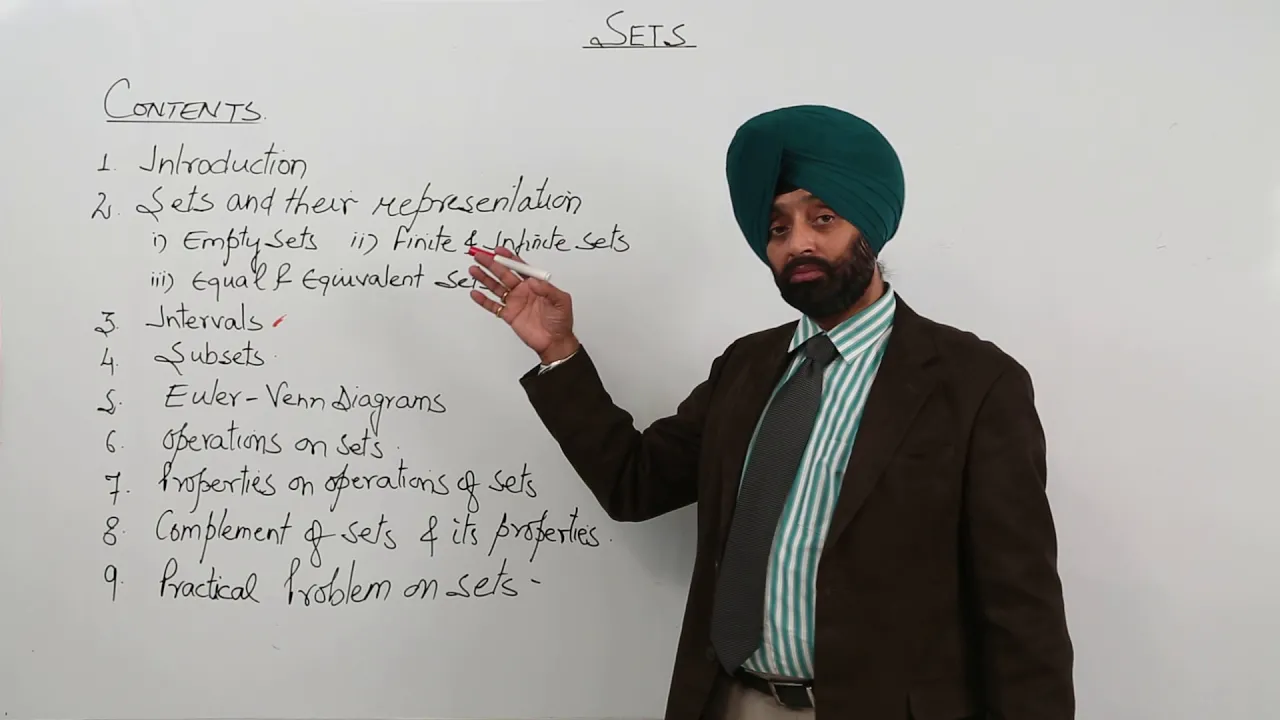 SETS
CONTENTS.
1. Introduction
2. Sets and their representation
i) Empty sets ii) Finite & Infinite sets
iii) Equal & Equivalent sets
3. Intervals
4. Subsets.
5. Euler-Venn Diagrams
6. Operations on sets.
7. Properties on operations of sets
8. Complement of sets & its properties.
9. Practical Problem on sets -